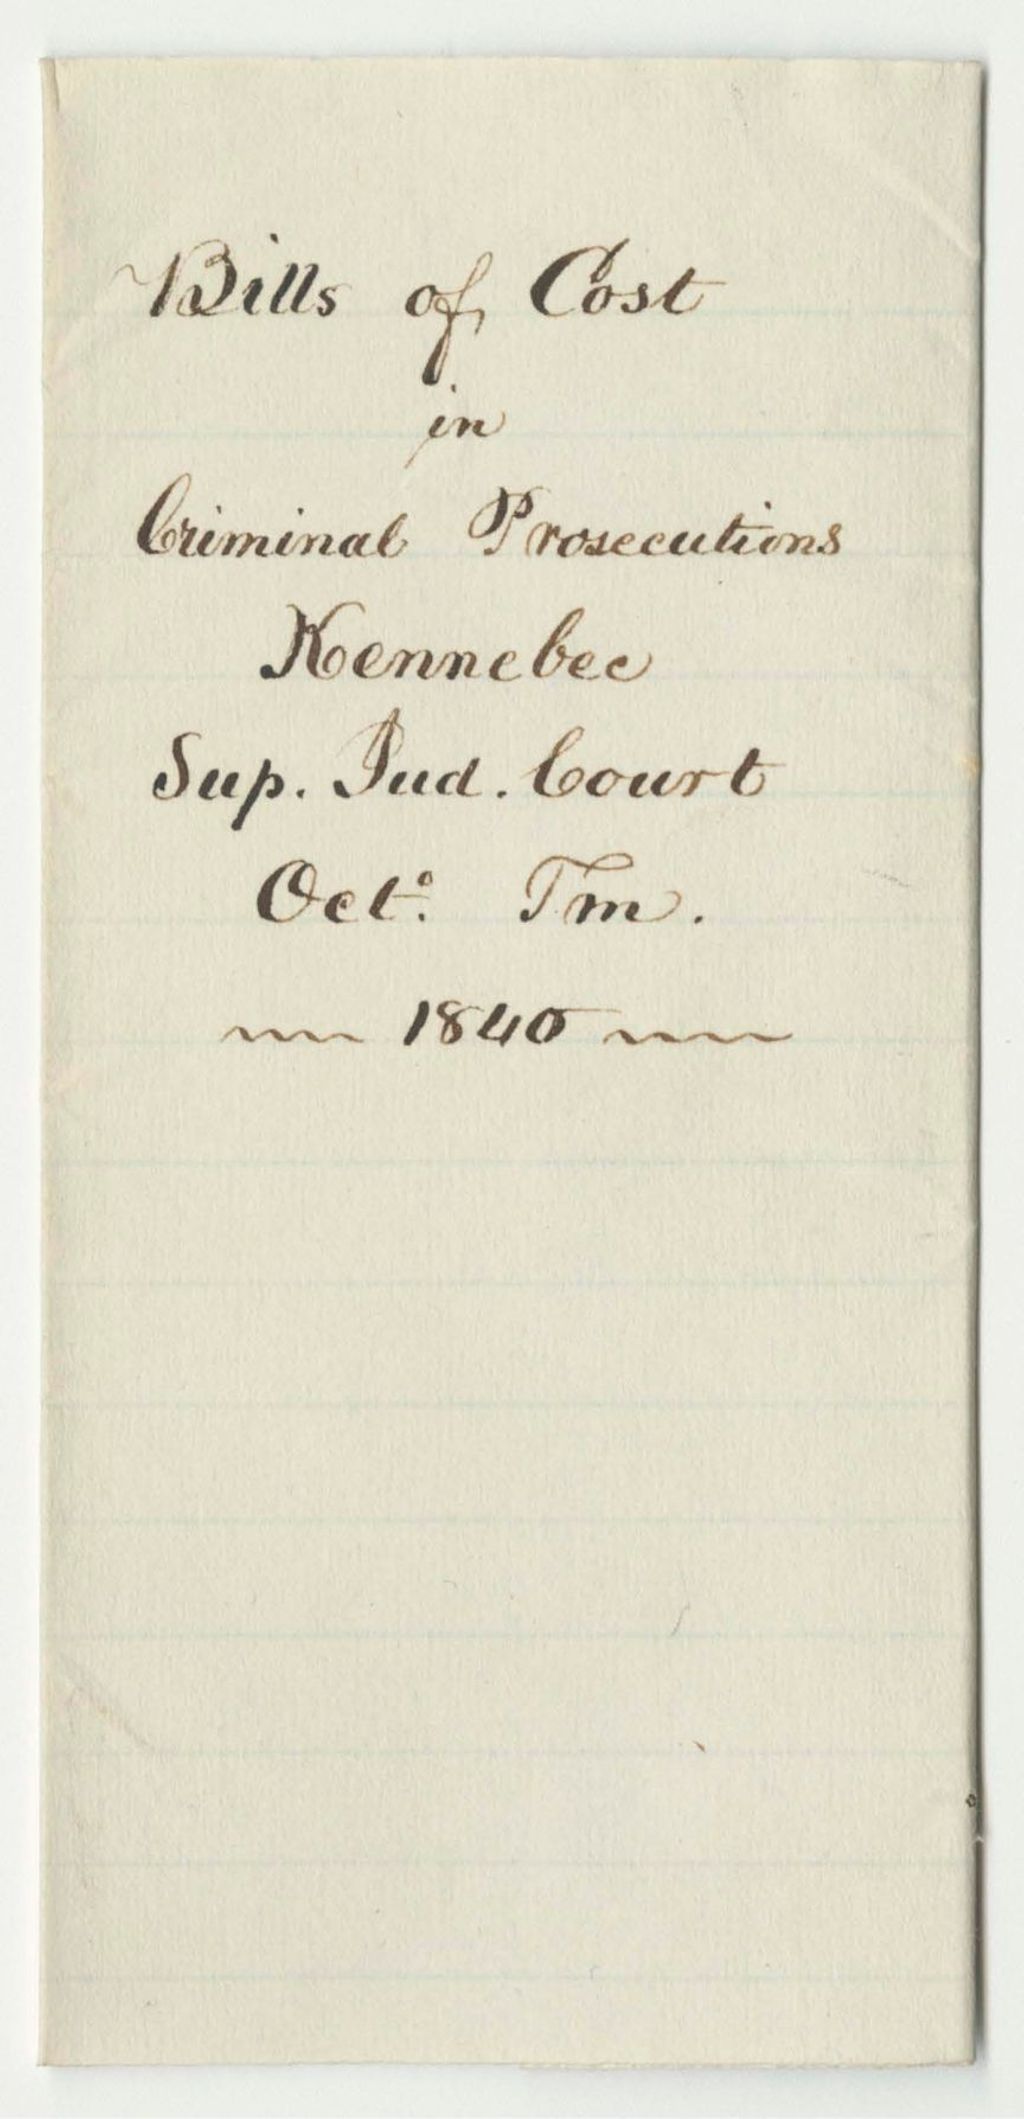 Bills of Cost
in
Criminal Prosecutions
Kennebec
Sup. Jud. Court
Oct.º Tm.
1840